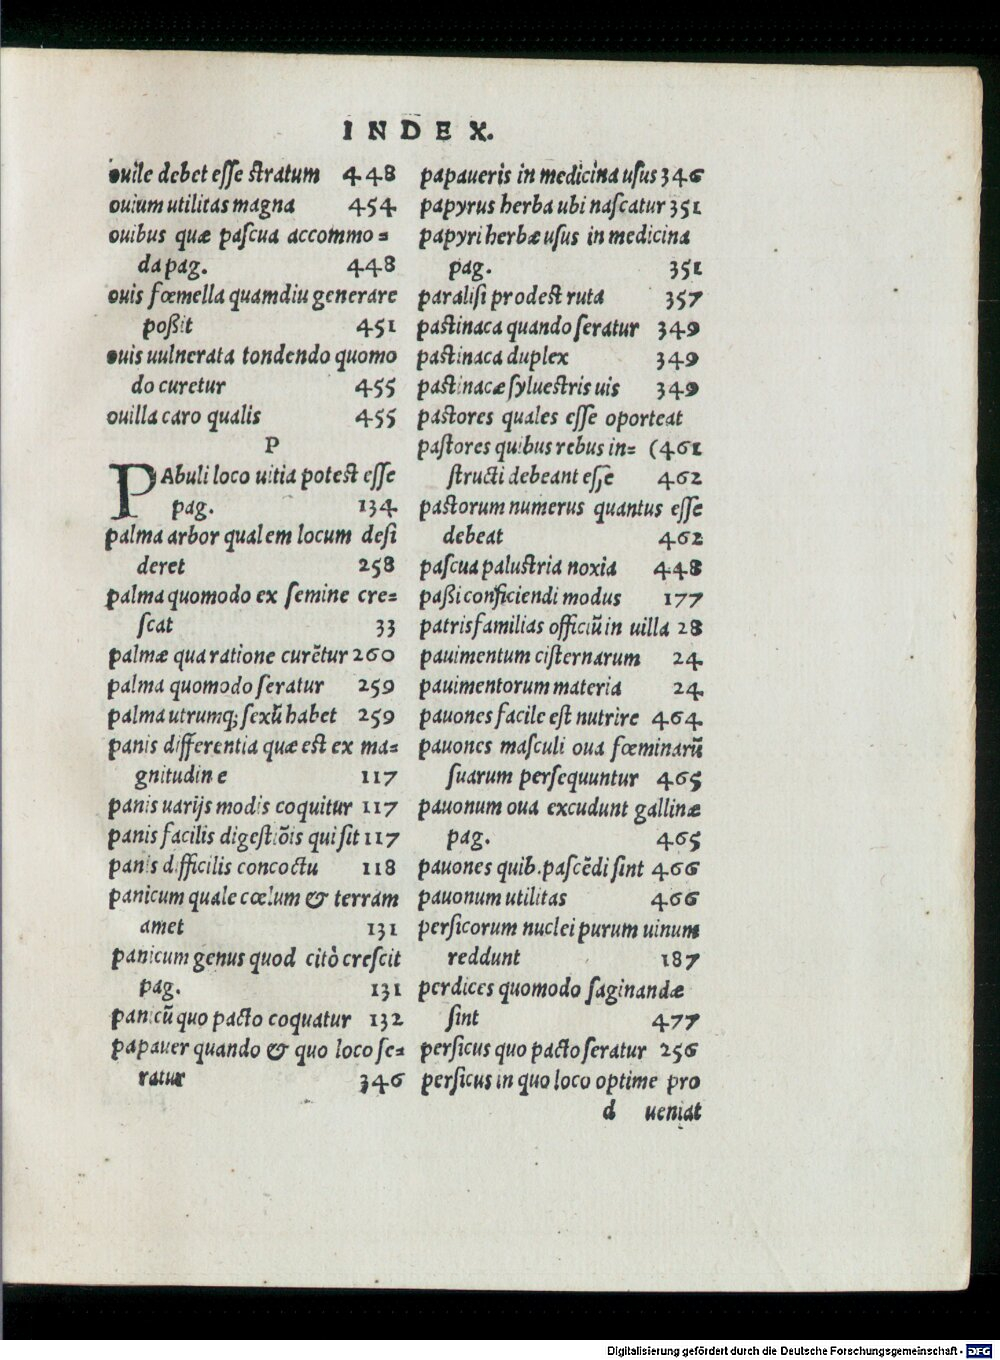 INDEX.
ouile debet esse stratum 448
ouium utilitas magna 454
ouibus quæ pascua accommo=
da pag. 448
ouis fœmella quamdiu generare
poßit 451
ouis uulnerata tondendo quomo
do curetur 455
ouilla caro qualis 455
P
PAbuli loco uitia potest esse
pag. 134
palma arbor qualem locum desi
deret 258
palma quomodo ex semine cre=
scat 33
palmæ qua ratione curẽtur 260
palma quomodo seratur 259
palma utrumq; sexũ habet 259
panis differentia quæ est ex ma=
gnitudine 117
panis uarijs modis coquitur 117
panis facilis digestiõis qui sit 117
panis difficilis concoctu 118
panicum quale cœlum & terram
amet 131
panicum genus quod citò crescit
pag. 131
panicũ quo pacto coquatur 132
papauer quando & quo loco se=
ratur 346
papaueris in medicina usus 346
papyrus herba ubi nascatur 351
papyri herbæ usus in medicina
pag. 351
paralisi prodest ruta 357
pastinaca quando seratur 349
pastinaca duplex 349
pastinacæ syluestris uis 349
pastores quales esse oporteat
pastores quibus rebus in= (461
structi debeant esse 462
pastorum numerus quantus esse
debeat 462
pascua palustria noxia 448
paßi conficiendi modus 177
patrisfamilias officiũ in uilla 28
pauimentum cisternarum 24
pauimentorum materia 24
pauones facile est nutrire 464
pauones masculi oua fœminarũ
suarum persequuntur 465
pauonum oua excudunt gallinæ
pag. 465
pauones quib. pascẽdi sint 466
pauonum utilitas 466
persicorum nuclei purum uinum
reddunt 187
perdices quomodo saginandæ
sint 477
persicus quo pacto seratur 256
persicus in quo loco optime pro
d ueniat
Digitalisierung gefördert durch die Deutsche Forschungsgemeinschaft - DFG